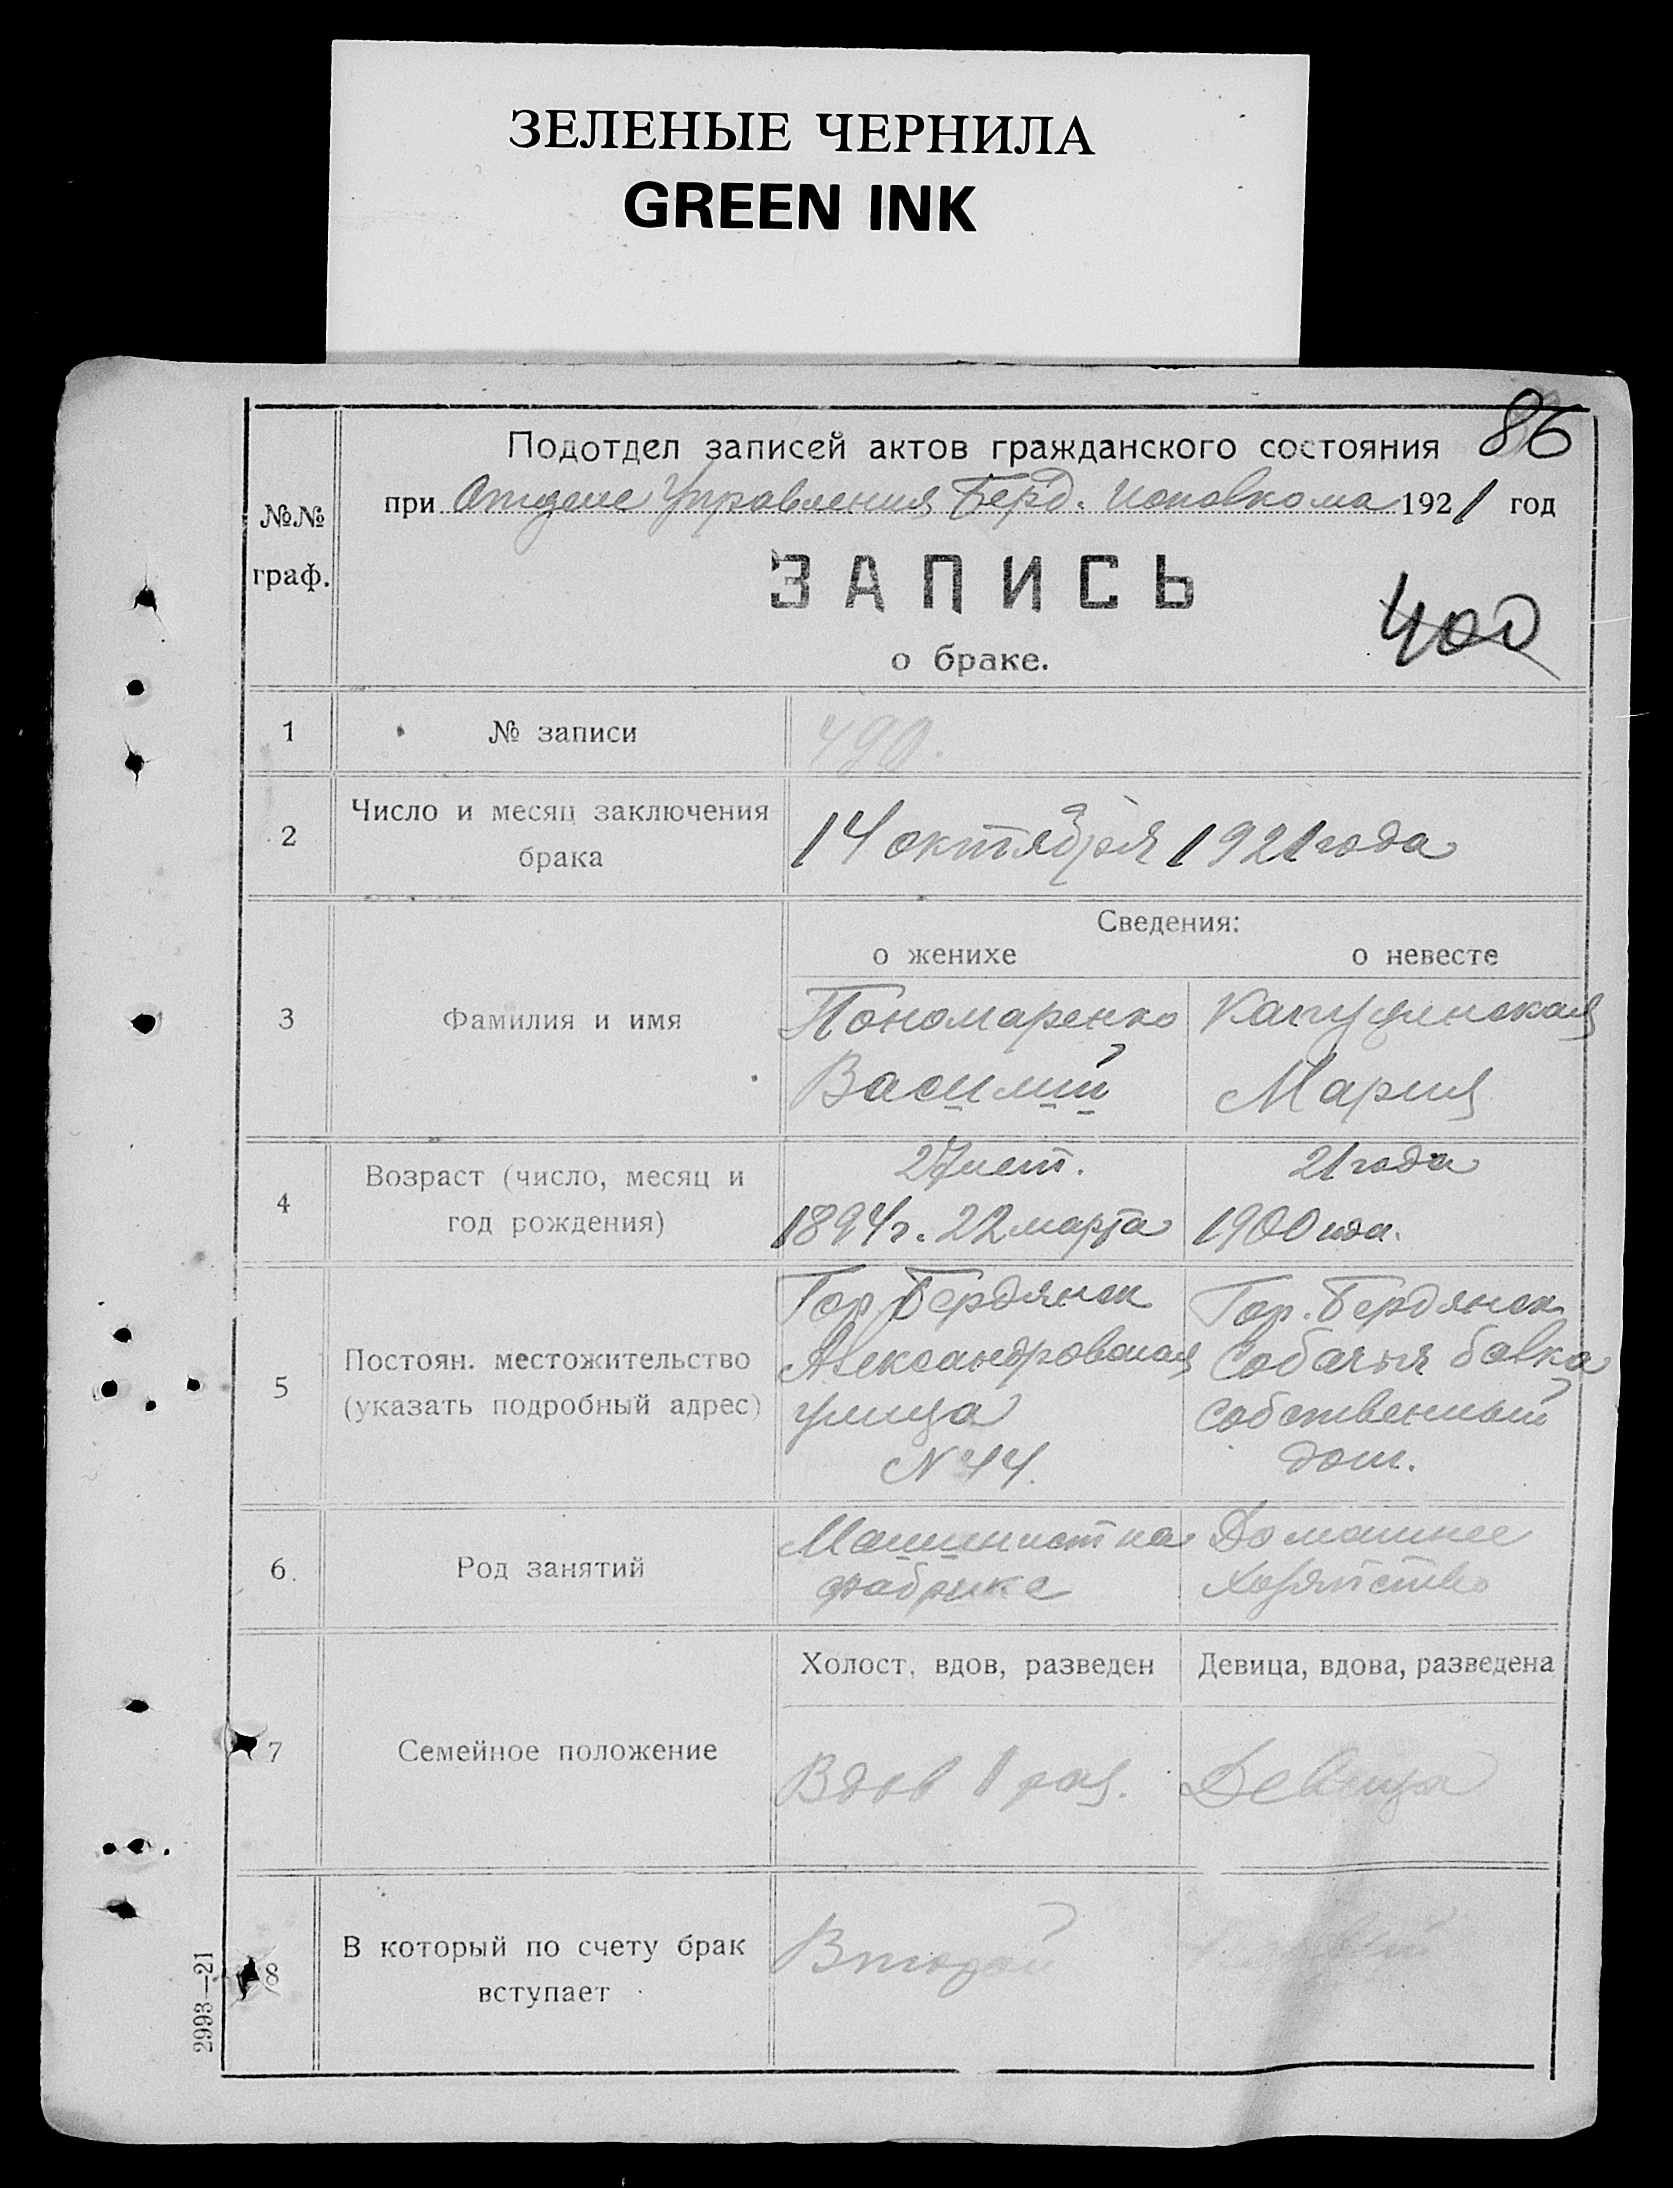 ЗЕЛЕНЫЕ ЧЕРНИЛА
GREEN INK
86
Подотдел записей актов гражданского состояния
№№ граф.
при Отделе Управления Берд. Исполкома 1921 год
ЗАПИСЬ
400
о браке.
1 № записи
2 Число и месяц заключения брака
14 октября 1921 года
Сведения:
о женихе о невесте
3 Фамилия и имя
Пономаренко
Василий
Мария
4 Возраст (число, месяц и год рождения)
27 лет. 21 года
1894 г. 22 марта 1900 года.
5 Постоян. местожительство
(указать подробный адрес)
Гор. Бердянск
Александровская
улица
N 44.
Гор. Бердянск
Собачья балка
собственный
дом.
6. Род занятий
Машинист на
фабрике
Домашнее
хозяйство
Холост, вдов, разведен Девица, вдова, разведена
7 Семейное положение
Вдов 1 раз. Девица
8 В который по счету брак
вступает
Второй
2993—21